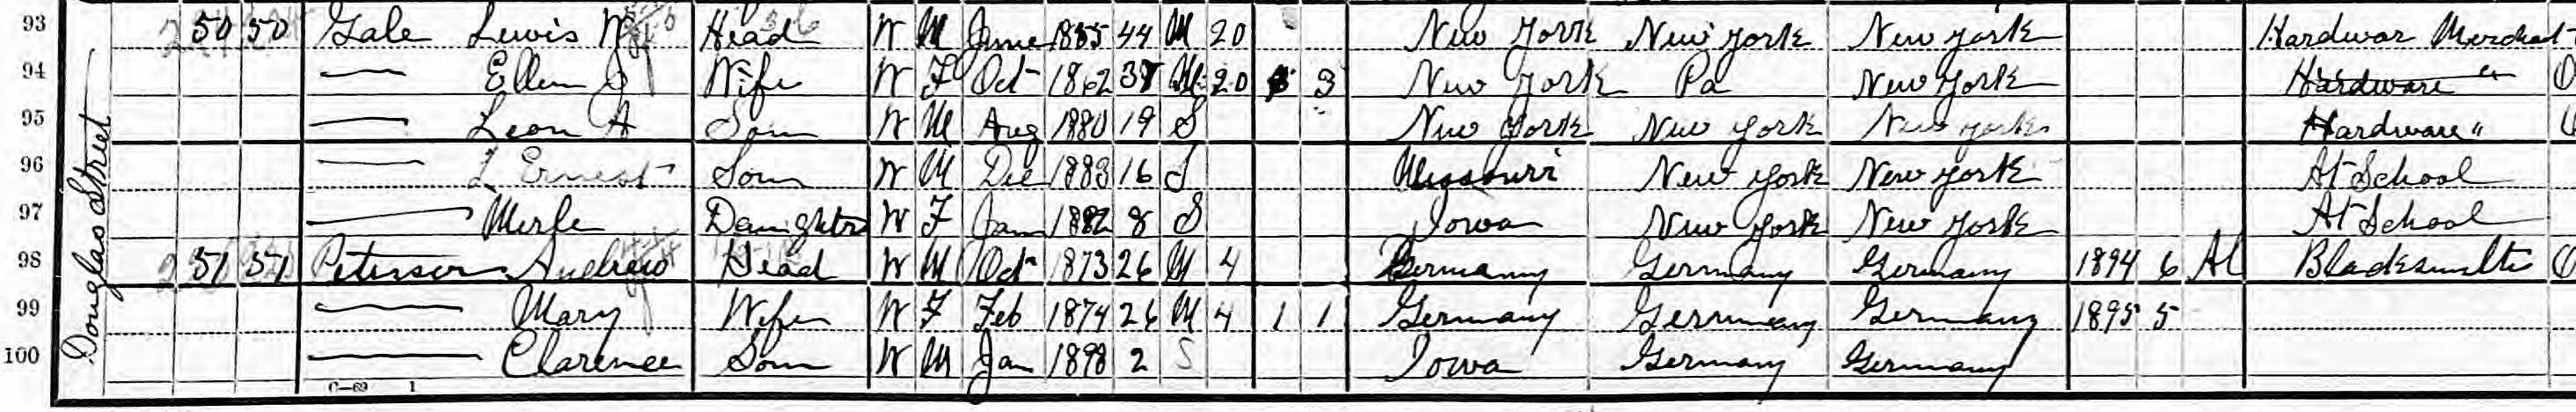 Douglas Street
93 50 50 Gale Lewis W Head W M June 1855 44 M 20 New York New York New York Hardwar Merchant
94 — Ellen J Wife W F Oct 1862 37 M 20 3 New York Pa New York Hardware "
95 — Leon A Son W M Aug 1880 19 S New York New York New York Hardware "
96 — L Ernest Son W M Dec 1883 16 S Missouri New York New York At School
97 — Merle Daughter W F Jan 1892 8 S Iowa New York New York At School
98 51 51 Peterson Andrew Head W M Oct 1873 26 M 4 Germany Germany Germany 1894 6 Al Blacksmith
99 — Mary Wife W F Feb 1874 26 M 4 1 1 Germany Germany Germany 1895 5
100 — Clarence Son W M Jan 1898 2 S Iowa Germany Germany
C—69 1